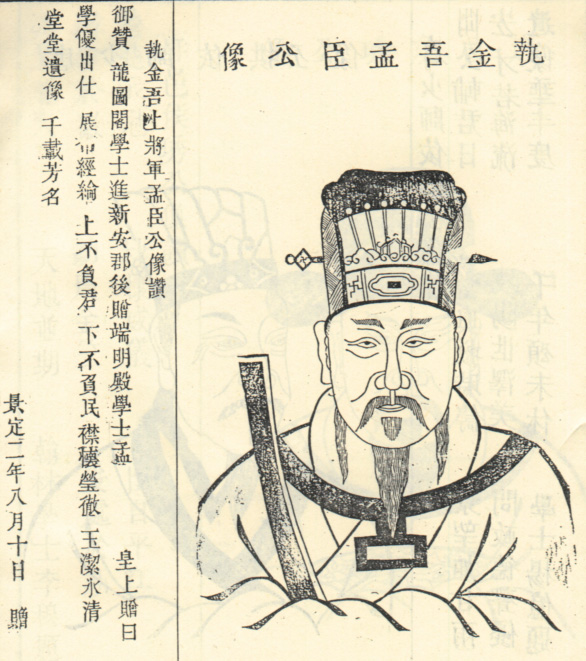 執金吾孟臣公像
執金吾上將軍孟臣公像讚
御贊 龍圖閣學士進新安郡後贈端明殿學士孟 皇上贈曰
學優出仕 展布經綸 上不負君 下不負民 襟懷瑩徹 玉潔氷清
堂堂遺像 千載芳名
景定二年八月十日 贈